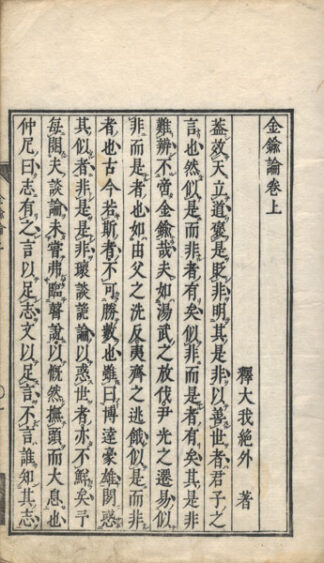 金鍮論卷上
釋大我絕外 著
蓋效天立道褒是貶非明其是非以善世者君子之
言也然似是而非者有矣似非而是者有矣其是非
難辨不啻金鍮哉夫如湯武之放伐尹光之遷易似
非而是者也如由父之洗反夷齊之逃餓似是而非
者也古今若斯者不可勝數也雖曰博達豪雄閎惑
其似者非是是非環談詭論以惑世者亦不鮮矣予
每閱夫談論未嘗弗臨聲說以慨然撫頭而大息也
仲尼曰志有之言以足志文以足言不言誰知其志